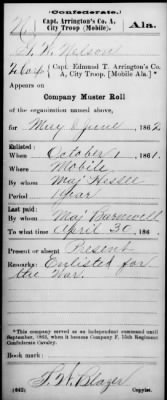 (Confederate.)
Capt. Arrington's Co. A,
City Troop (Mobile).
Ala.
Nelson
Capt. Edmund T. Arrington's Co. A,
City Troop, [Mobile Ala.]*
Appears on
Company Muster Roll
of the organization named above,
for May & June, 186
Enlisted:
When October 1, 1861.
Where Mobile
By whom Maj Hessee
Period 1 year
Last paid:
By whom Maj Barnwell
To what time April 30, 186
Present or absent Present
Remarks: Enlisted for
the War.
*This company served as an independent command until
September, 1863, when it became Company F, 15th Regiment
Confederate Cavalry.
Book mark:
(642)
Copyist.